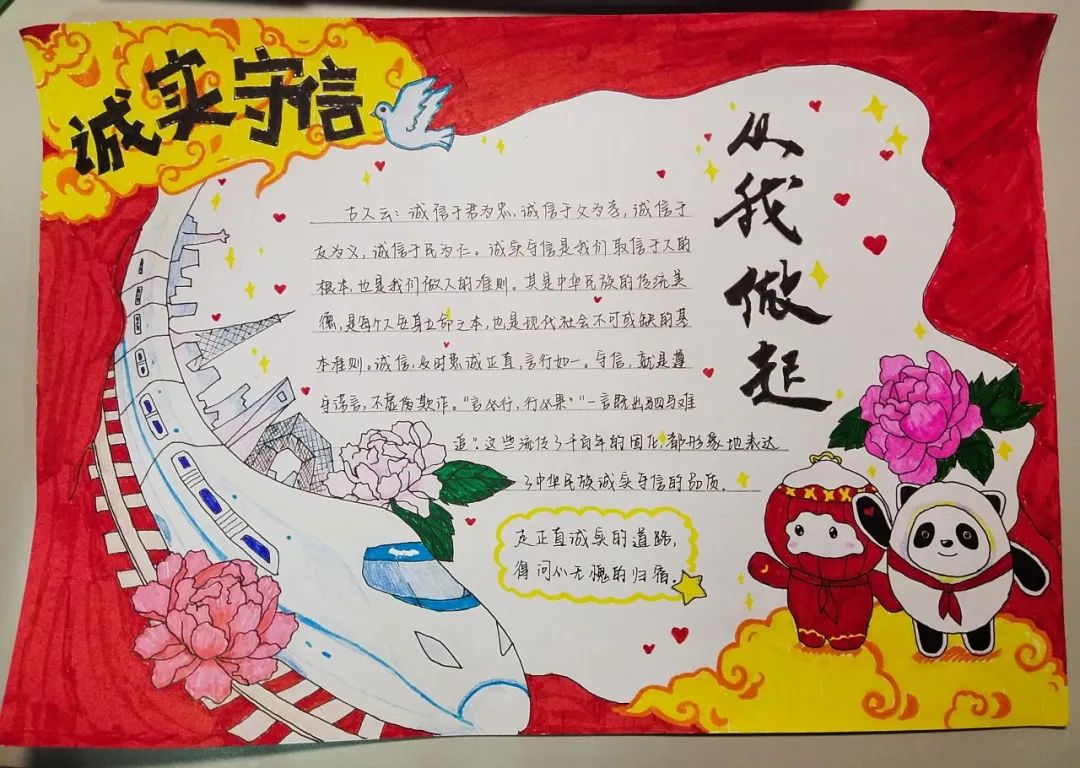 诚实守信
从我做起
古人云：诚信于君为忠，诚信于父为孝，诚信于
友为义，诚信于民为仁。诚实守信是我们取信于人的
根本，也是我们做人的准则。其是中华民族的传统美
德，是每个人安身立命之本，也是现代社会不可或缺的基
本准则。诚信，及时忠诚正直，言行如一。守信，就是遵
守诺言，不虚伪欺诈。“言必行，行必果”“一言既出驷马难
追”，这些流传了千百年的固化，都形象地表达
了中华民族诚实守信的品质。
走正直诚实的道路，
得问心无愧的归宿。